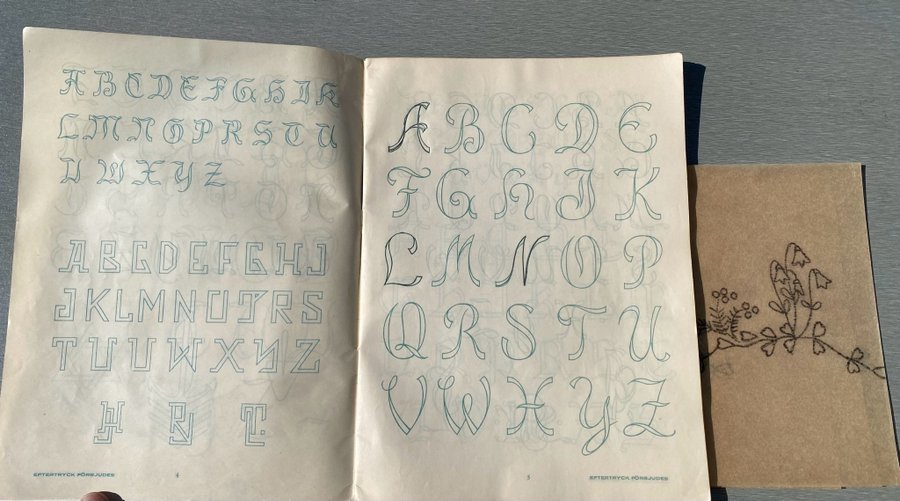 A B C D E F G H I K
L M N O P R S T U
V W X Y Z
A B C D E F G H I
J K L M N O P R S
T U V W X Y Z
EFTERTRYCK FÖRBJUDES 4
A B C D E
F G H J K
L M N O P
Q R S T U
V W X Y Z
5 EFTERTRYCK FÖRBJUDES